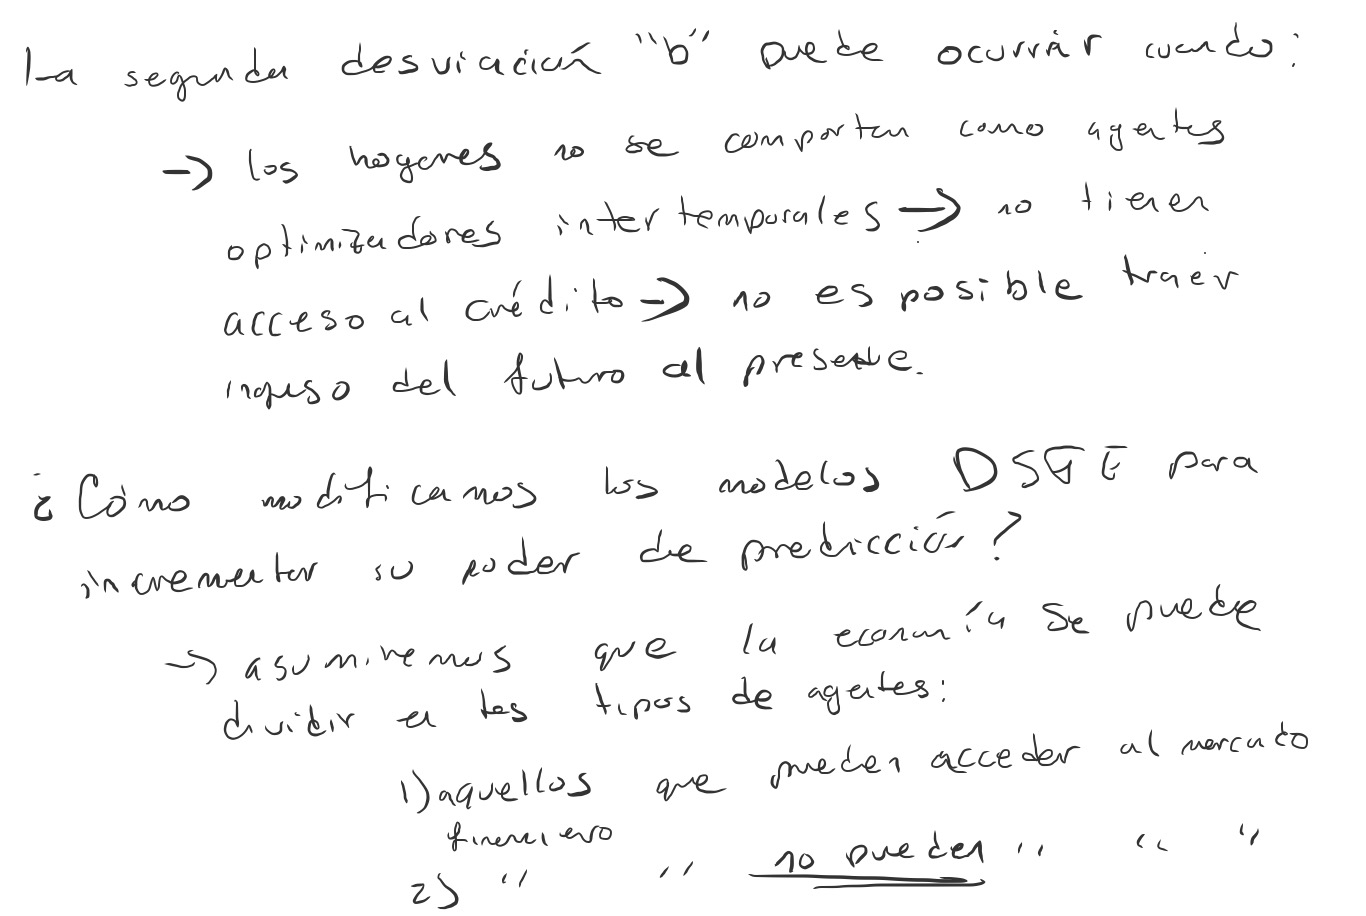 La segunda desviación "b" puede ocurrir cuando:
→ los hogares no se comportan como agentes
optimizadores intertemporales → no tienen
acceso al crédito → no es posible traer
ingreso del futuro al presente.
¿Cómo modificamos los modelos DSGE para
incrementar su poder de predicción?
→ asumiremos que la economía se puede
dividir en tipos de agentes:
1) aquellos que pueden acceder al mercado
financiero
2) " " no pueden " " "